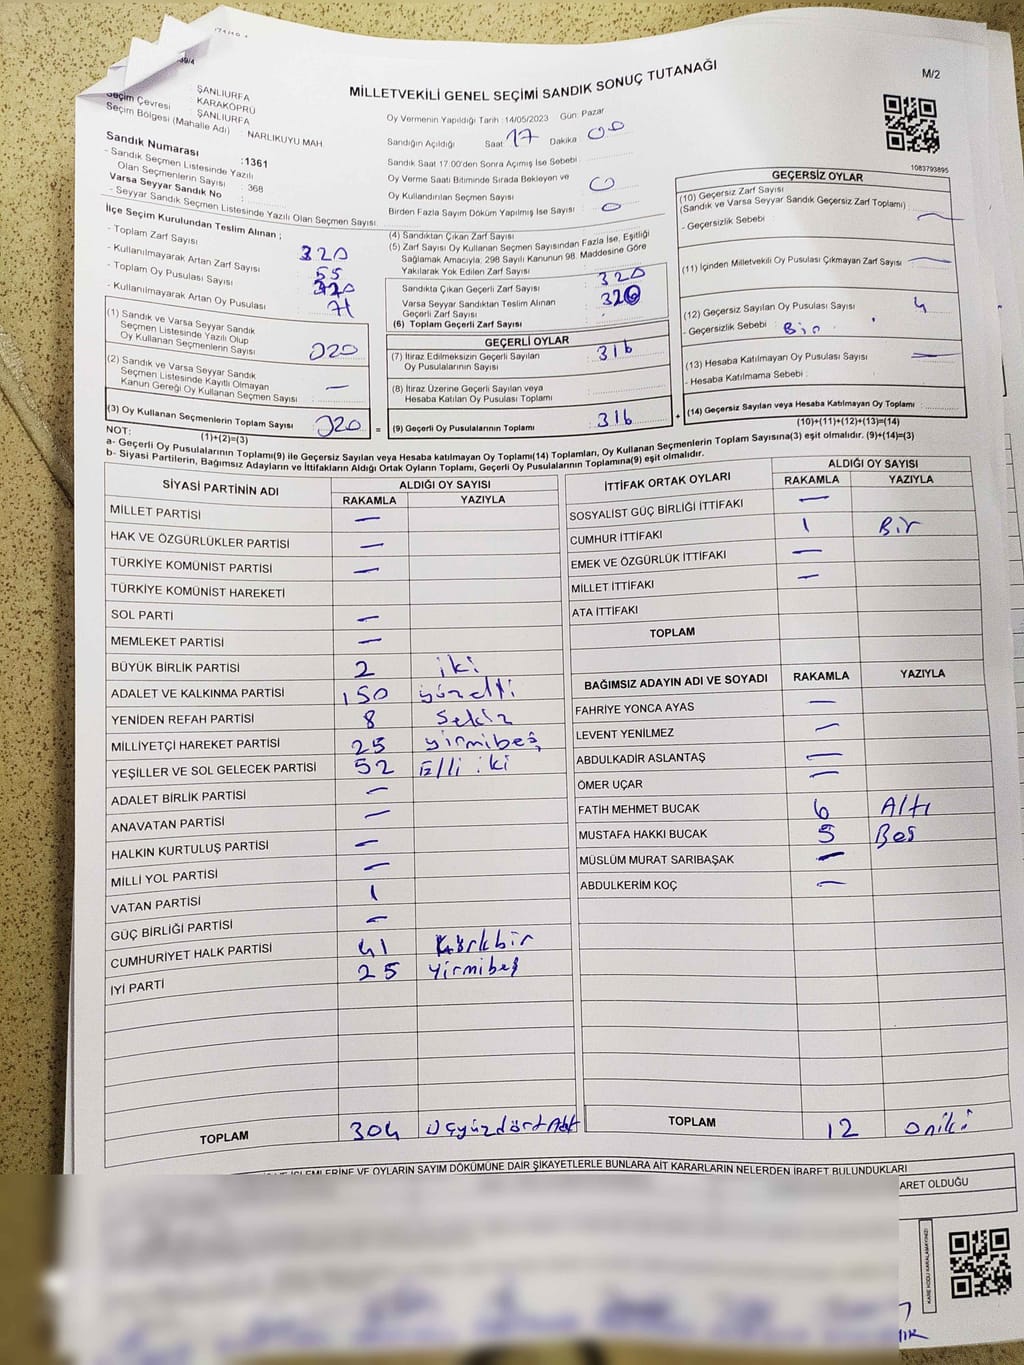 MİLLETVEKİLİ GENEL SEÇİMİ SANDIK SONUÇ TUTANAĞI
M/2
Seçim Çevresi : ŞANLIURFA
KARAKÖPRÜ
ŞANLIURFA
Seçim Bölgesi (Mahalle Adı) : NARLIKUYU MAH
Sandık Numarası : 1361
- Sandık Seçmen Listesinde Yazılı
Olan Seçmenlerin Sayısı : 368
Varsa Seyyar Sandık No :
- Seyyar Sandık Seçmen Listesinde Yazılı Olan Seçmen Sayısı
Oy Vermenin Yapıldığı Tarih : 14/05/2023 Gün: Pazar
Sandığın Açıldığı Saat 17 Dakika 00
Sandık Saat 17.00'den Sonra Açımış İse Sebebi
Oy Verme Saati Bitiminde Sırada Bekleyen ve
Oy Kullandırılan Seçmen Sayısı 0
Birden Fazla Sayım Döküm Yapılmış İse Sayısı 0
1083793895
İlçe Seçim Kurulundan Teslim Alınan ;
- Toplam Zarf Sayısı : 320
- Kullanılmayarak Artan Zarf Sayısı : 55
- Toplam Oy Pusulası Sayısı :
- Kullanılmayarak Artan Oy Pusulası : 71
(1) Sandık ve Varsa Seyyar Sandık
Seçmen Listesinde Yazılı Olup
Oy Kullanan Seçmenlerin Sayısı : 320
(2) Sandık ve Varsa Seyyar Sandık
Seçmen Listesinde Kayıtlı Olmayan
Kanun Gereği Oy Kullanan Seçmen Sayısı : —
(3) Oy Kullanan Seçmenlerin Toplam Sayısı 320 =
(1)+(2)=(3)
(4) Sandıktan Çıkan Zarf Sayısı
(5) Zarf Sayısı Oy Kullanan Seçmen Sayısından Fazla İse, Eşitliği
Sağlamak Amacıyla, 298 Sayılı Kanunun 98. Maddesine Göre
Yakılarak Yok Edilen Zarf Sayısı
Sandıkta Çıkan Geçerli Zarf Sayısı : 320
Varsa Seyyar Sandıktan Teslim Alınan
Geçerli Zarf Sayısı :
(6) Toplam Geçerli Zarf Sayısı
GEÇERLİ OYLAR
(7) İtiraz Edilmeksizin Geçerli Sayılan
Oy Pusulalarının Sayısı : 316
(8) İtiraz Üzerine Geçerli Sayılan veya
Hesaba Katılan Oy Pusulası Toplamı
(9) Geçerli Oy Pusulalarının Toplamı 316 +
GEÇERSİZ OYLAR
(10) Geçersiz Zarf Sayısı
(Sandık ve Varsa Seyyar Sandık Geçersiz Zarf Toplamı)
- Geçersizlik Sebebi : —
(11) İçinden Milletvekili Oy Pusulası Çıkmayan Zarf Sayısı —
(12) Geçersiz Sayılan Oy Pusulası Sayısı 4
- Geçersizlik Sebebi :
(13) Hesaba Katılmayan Oy Pusulası Sayısı —
- Hesaba Katılmama Sebebi :
(14) Geçersiz Sayılan veya Hesaba Katılmayan Oy Toplamı
(10)+(11)+(12)+(13)=(14)
NOT:
a- Geçerli Oy Pusulalarının Toplamı(9) ile Geçersiz Sayılan veya Hesaba katılmayan Oy Toplamı(14) Toplamları, Oy Kullanan Seçmenlerin Toplam Sayısına(3) eşit olmalıdır. (9)+(14)=(3)
b- Siyasi Partilerin, Bağımsız Adayların ve İttifakların Aldığı Ortak Oyların Toplamı, Geçerli Oy Pusulalarının Toplamına(9) eşit olmalıdır.
SİYASİ PARTİNİN ADI ALDIĞI OY SAYISI
RAKAMLA YAZIYLA
MİLLET PARTİSİ —
HAK VE ÖZGÜRLÜKLER PARTİSİ —
TÜRKİYE KOMÜNİST PARTİSİ —
TÜRKİYE KOMÜNİST HAREKETİ
SOL PARTİ —
MEMLEKET PARTİSİ —
BÜYÜK BİRLİK PARTİSİ 2 iki
ADALET VE KALKINMA PARTİSİ 150 yüzelli
YENİDEN REFAH PARTİSİ 8 Sekiz
MİLLİYETÇİ HAREKET PARTİSİ 25 yirmibeş
YEŞİLLER VE SOL GELECEK PARTİSİ 52 Elli iki
ADALET BİRLİK PARTİSİ —
ANAVATAN PARTİSİ —
HALKIN KURTULUŞ PARTİSİ —
MİLLİ YOL PARTİSİ —
VATAN PARTİSİ 1
GÜÇ BİRLİĞİ PARTİSİ —
CUMHURİYET HALK PARTİSİ 41 Kırkbir
İYİ PARTİ 25 Yirmibeş
TOPLAM 304 Üçyüzdört
İTTİFAK ORTAK OYLARI ALDIĞI OY SAYISI
RAKAMLA YAZIYLA
SOSYALİST GÜÇ BİRLİĞİ İTTİFAKI —
CUMHUR İTTİFAKI 1 Bir
EMEK VE ÖZGÜRLÜK İTTİFAKI —
MİLLET İTTİFAKI —
ATA İTTİFAKI
TOPLAM
BAĞIMSIZ ADAYIN ADI VE SOYADI RAKAMLA YAZIYLA
FAHRİYE YONCA AYAS —
LEVENT YENİLMEZ —
ABDULKADİR ASLANTAŞ —
ÖMER UÇAR —
FATİH MEHMET BUCAK 6 Altı
MUSTAFA HAKKI BUCAK 5 Beş
MÜSLÜM MURAT SARIBAŞAK —
ABDULKERİM KOÇ —
TOPLAM 12 oniki
İŞLEMLERİNE VE OYLARIN SAYIM DÖKÜMÜNE DAİR ŞİKAYETLERLE BUNLARA AİT KARARLARIN NELERDEN İBARET BULUNDUKLARI
ARET OLDUĞU
KARE KODU KARALAMAYINIZ!